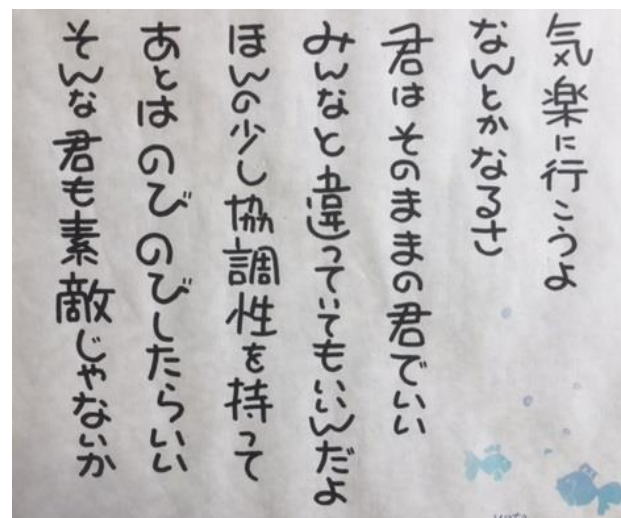 気楽に行こうよ
なんとかなるさ
君はそのままの君でいい
みんなと違っていてもいいんだよ
ほんの少し協調性を持って
あとはのびのびしたらいい
そんな君も素敵じゃないか